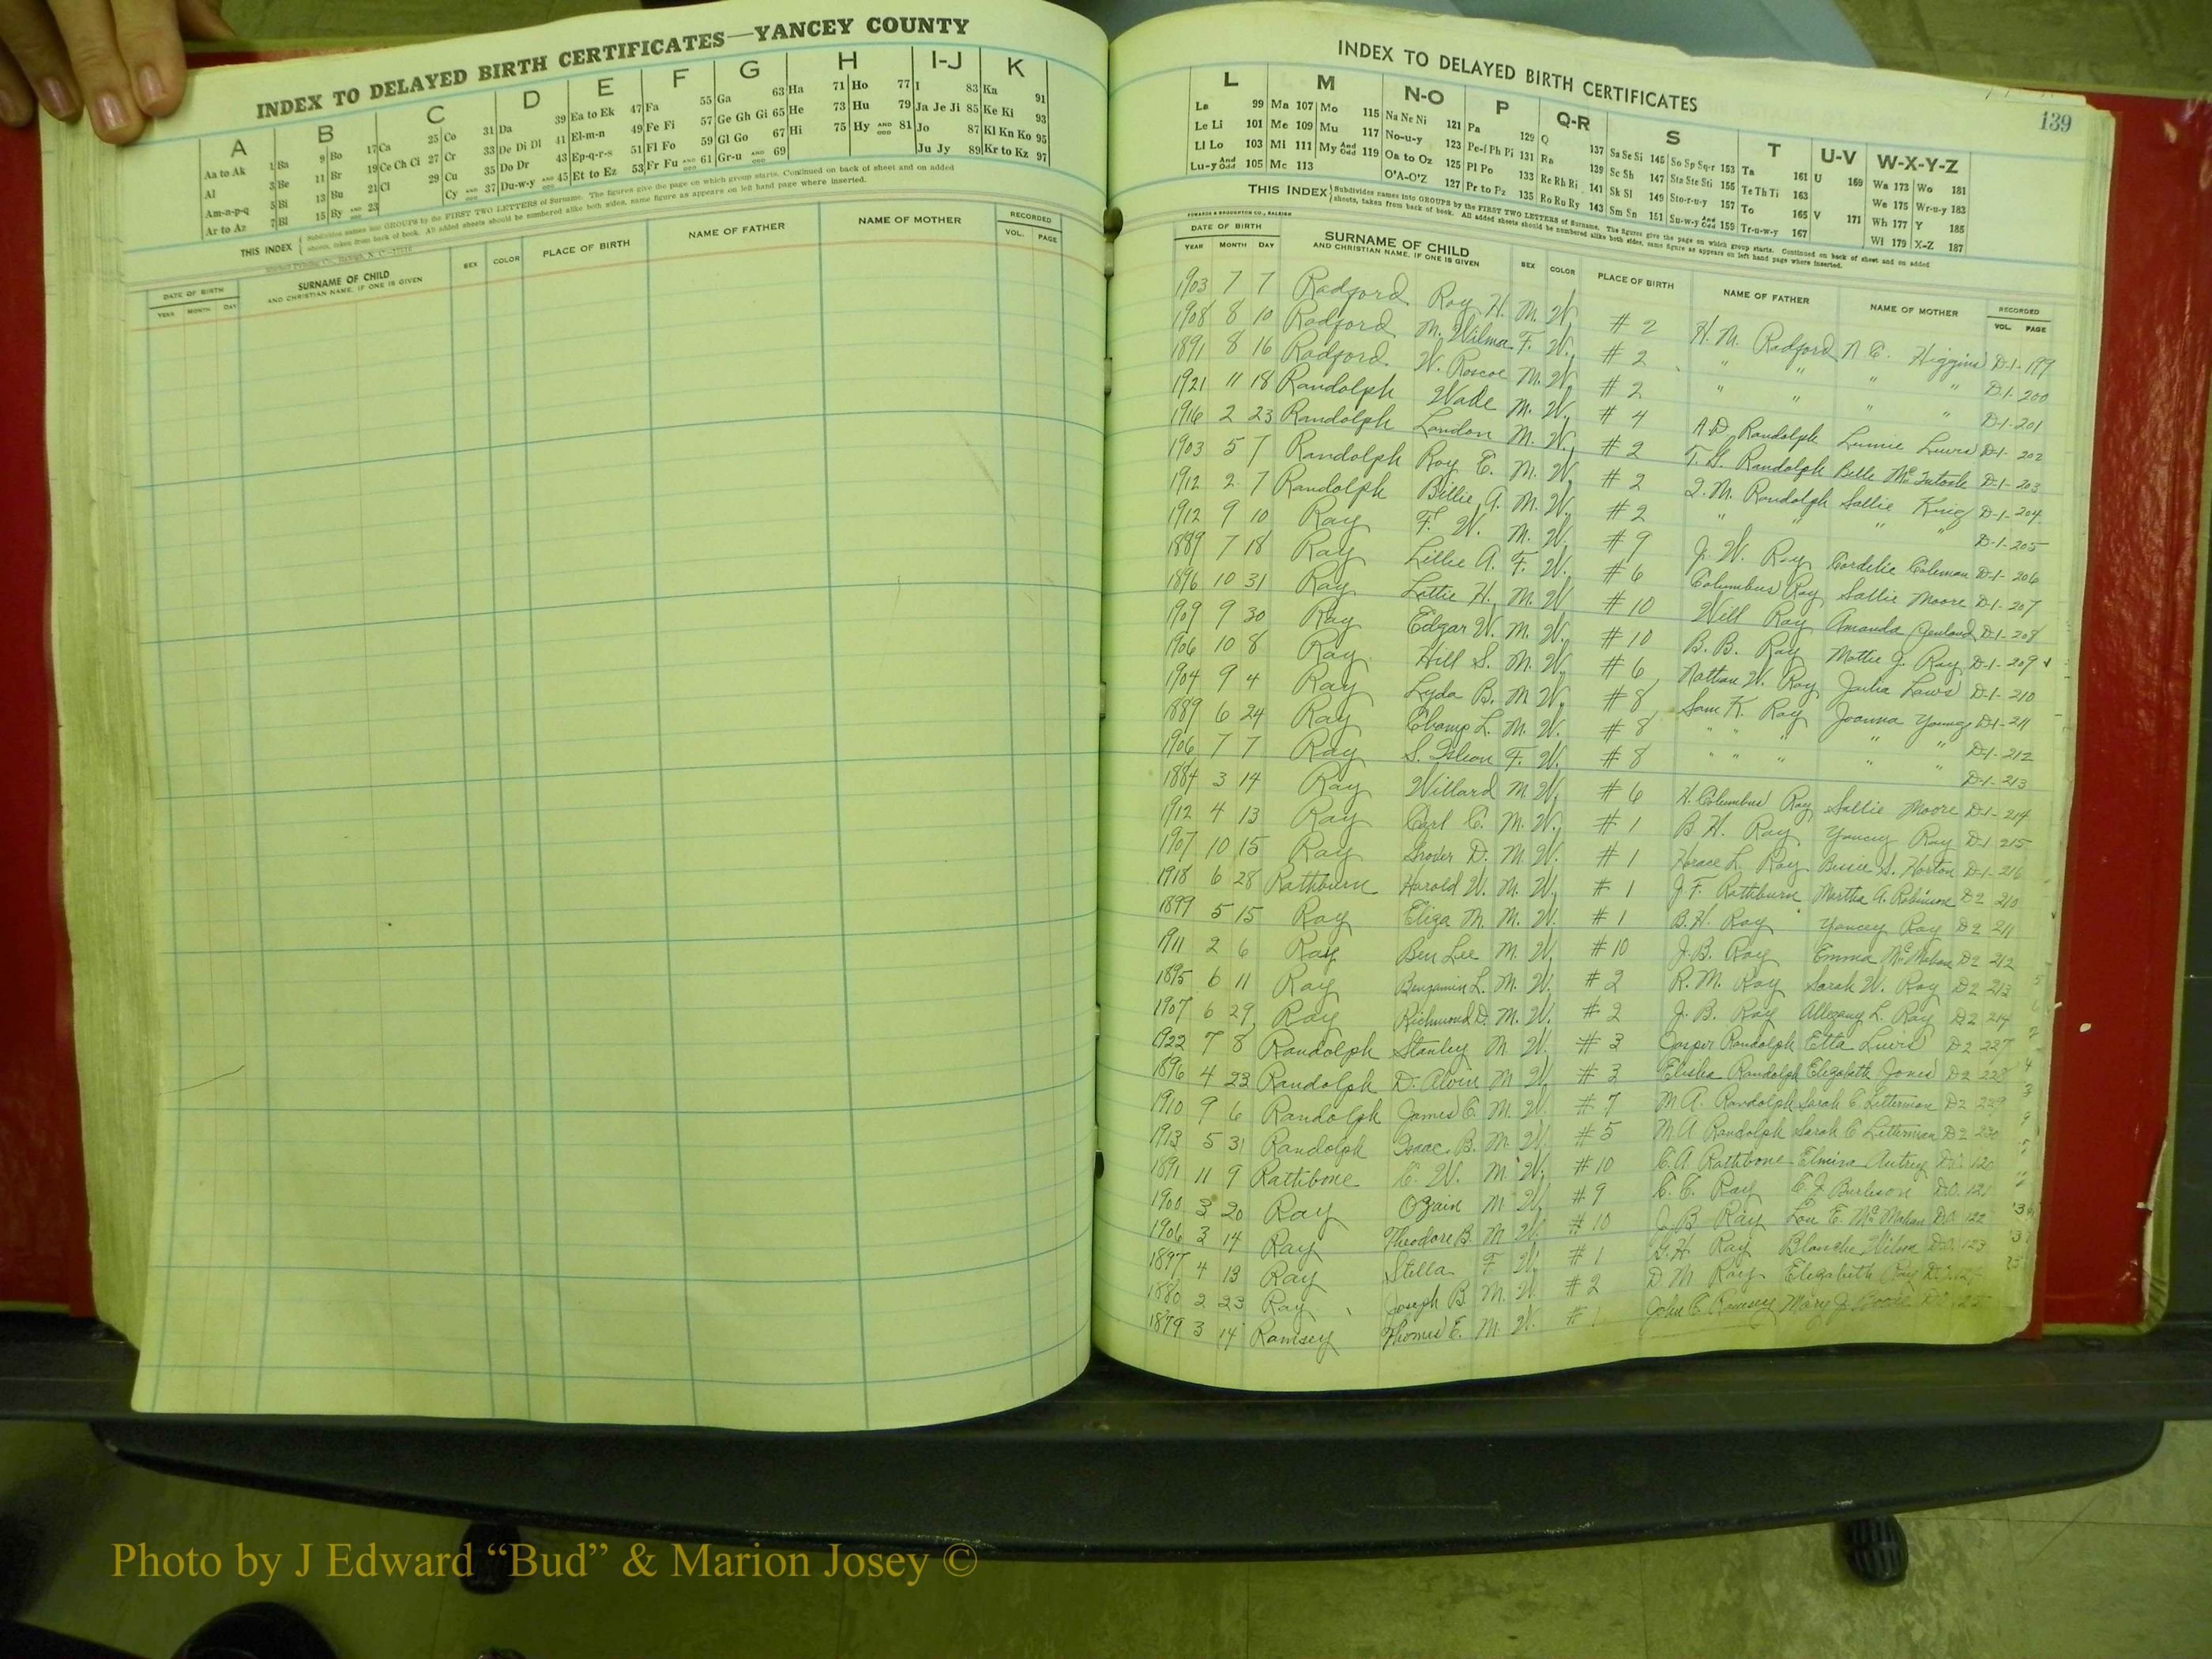 INDEX TO DELAYED BIRTH CERTIFICATES—YANCEY COUNTY
A B C D E F G H I-J K
Aa to Ak 1 Ba 9 Bo 17 Ca 25 Co 31 Da 39 Ea to Ek 47 Fa 55 Ga 63 Ha 71 Ho 77 I 83 Ka 91
Al 3 Be 11 Br 19 Ce Ch Ci 27 Cr 33 De Di Dl 41 El-m-n 49 Fe Fi 57 Ge Gh Gi 65 He 73 Hu 79 Ja Je Ji 85 Ke Ki 93
Am-n-p-q 5 Bi 13 Bu 21 Cl 29 Cu 35 Do Dr 43 Ep-q-r-s 51 Fl Fo 59 Gl Go 67 Hi 75 Hy AND ODD 81 Jo 87 Kl Kn Ko 95
Ar to Az 7 Bl 15 By AND 23 Cy AND 37 Du-w-y AND ODD 45 Et to Ez 53 Fr Fu AND ODD 61 Gr-u AND ODD 69 Ju Jy 89 Kr to Kz 97
THIS INDEX Subdivides names into GROUPS by the FIRST TWO LETTERS of Surname. The figures give the page on which group starts. Continued on back of sheet and on added
sheets, taken from back of book. All added sheets should be numbered alike both sides, same figure as appears on left hand page where inserted.
DATE OF BIRTH SURNAME OF CHILD SEX COLOR PLACE OF BIRTH NAME OF FATHER NAME OF MOTHER RECORDED
YEAR MONTH DAY AND CHRISTIAN NAME, IF ONE IS GIVEN VOL. PAGE
INDEX TO DELAYED BIRTH CERTIFICATES
139
L M N-O P Q-R S T U-V W-X-Y-Z
La 99 Ma 107 Mo 115 Na Ne Ni 121 Pa 129 Q 137 Sa Se Si 145 So Sp Sq-r 153 Ta 161 U 169 Wa 173 Wo 181
Le Li 101 Me 109 Mu 117 No-u-y 123 Pe-f Ph Pi 131 Ra 139 Sc Sh 147 Sta Ste Sti 155 Te Th Ti 163 We 175 Wr-u-y 183
Ll Lo 103 Mi 111 My And Odd 119 Oa to Oz 125 Pl Po 133 Re Rh Ri 141 Sk Sl 149 Sto-r-u-y 157 To 165 V 171 Wh 177 Y 185
Lu-y And Odd 105 Mc 113 O'A-O'Z 127 Pr to Pz 135 Ro Ru Ry 143 Sm Sn 151 Su-w-y And Odd 159 Tr-u-w-y 167 Wi 179 X-Z 187
THIS INDEX Subdivides names into GROUPS by the FIRST TWO LETTERS of Surname. The figures give the page on which group starts. Continued on back of sheet and on added
sheets, taken from back of book. All added sheets should be numbered alike both sides, same figure as appears on left hand page where inserted.
EDWARDS & BROUGHTON CO., RALEIGH
DATE OF BIRTH SURNAME OF CHILD SEX COLOR PLACE OF BIRTH NAME OF FATHER NAME OF MOTHER RECORDED
YEAR MONTH DAY AND CHRISTIAN NAME, IF ONE IS GIVEN VOL. PAGE
1903 7 7 Radford Roy H. M. W. # 2 H. M. Radford N. E. Higgins D-1-199
1908 8 10 Radford M. Wilma F. W. # 2 " " " " D-1-200
1891 8 16 Radford W. Roscoe M. W. # 2 " " " " D-1-201
1921 11 18 Randolph Wade M. W. # 4 A.D. Randolph Lewis D-1-202
1916 2 23 Randolph Landon M. W. # 2 T. G. Randolph Belle McIntosh D-1-203
1903 5 7 Randolph Roy E. M. W. # 2 Randolph Sallie King D-1-204
1912 2 7 Randolph Billie A. M. W. # 2 " " " " D-1-205
1912 9 10 Ray F. W. M. W. # 9 J. W. Ray Cordelie Coleman D-1-206
1889 7 18 Ray Lillie A. F. W. # 6 Columbus Ray Sallie Moore D-1-207
1896 10 31 Ray Lottie H. M. W. # 10 Will Ray Amanda Penland D-1-208
1909 9 30 Ray Edgar W. M. W. # 10 B. B. Ray Mottie J. Ray D-1-209
1906 10 8 Ray Hill S. M. W. # 6 Nathan W. Ray Julia Laws D-1-210
1904 9 4 Ray Lyda B. M W. # 8 Sam K. Ray Joanna Young D-1-211
1889 6 24 Ray Champ L. M. W. # 8 " " " " " D-1-212
1906 7 7 Ray S. F. W. # 8 " " " " D-1-213
1884 3 14 Ray Willard M. W. # 6 H. Columbus Ray Sallie Moore D-1-214
1912 4 13 Ray Carl C. M. W. # 1 B. H. Ray Yancey Ray D-1-215
1907 10 15 Ray Grover D. M. W. # 1 Horace L. Ray Bessie S. Horton D-1-216
1918 6 28 Rathburn Harold W. M. W. # 1 J. F. Rathburn Martha A. Robinson D2 210
1899 5 15 Ray Eliza M. M. W. # 1 B. H. Ray Yancey Ray D2 211
1911 2 6 Ray Ben Lee M W. # 10 J. B. Ray Emma McMahan D2 212
1895 6 11 Ray Benjamin L. M. W. # 2 R. M. Ray Sarah W. Ray D2 213
1907 6 29 Ray Richmond D. M. W. # 2 J. B. Ray Allegany L. Ray D2 214
1922 7 8 Randolph Stanley M W. # 3 Jasper Randolph Etta Lewis D2 227
1896 4 23 Randolph D. Alvin M W. # 3 Elisha Randolph Elizabeth Jones D2 228
1910 9 6 Randolph James C. M. W. # 7 M A. Randolph Sarah C. Letterman D2 229
1913 5 31 Randolph Isaac B. M. W. # 5 M A Randolph Sarah C Letterman D2 230
1891 11 9 Rathbone C. W. M. W. # 10 C. A Rathbone Elmira Autrey 120
1900 3 20 Ray Ozain M W. # 9 C. C. Ray C. J. Burleson D.O. 121
1906 3 14 Ray Theodore B. M W. # 10 J. B Ray Lou E. McMahan D.O. 122
1897 4 13 Ray Stella F W. # 1 G. H. Ray Blanche Wilson D.O. 123
1880 2 23 Ray Joseph B. M. W. # 2 D. M Ray Elizabeth Ray
1879 3 14 Ramsey Thomas E. M. W. # John C. Ramsey Mary J. Boone
Photo by J Edward “Bud” & Marion Josey ©